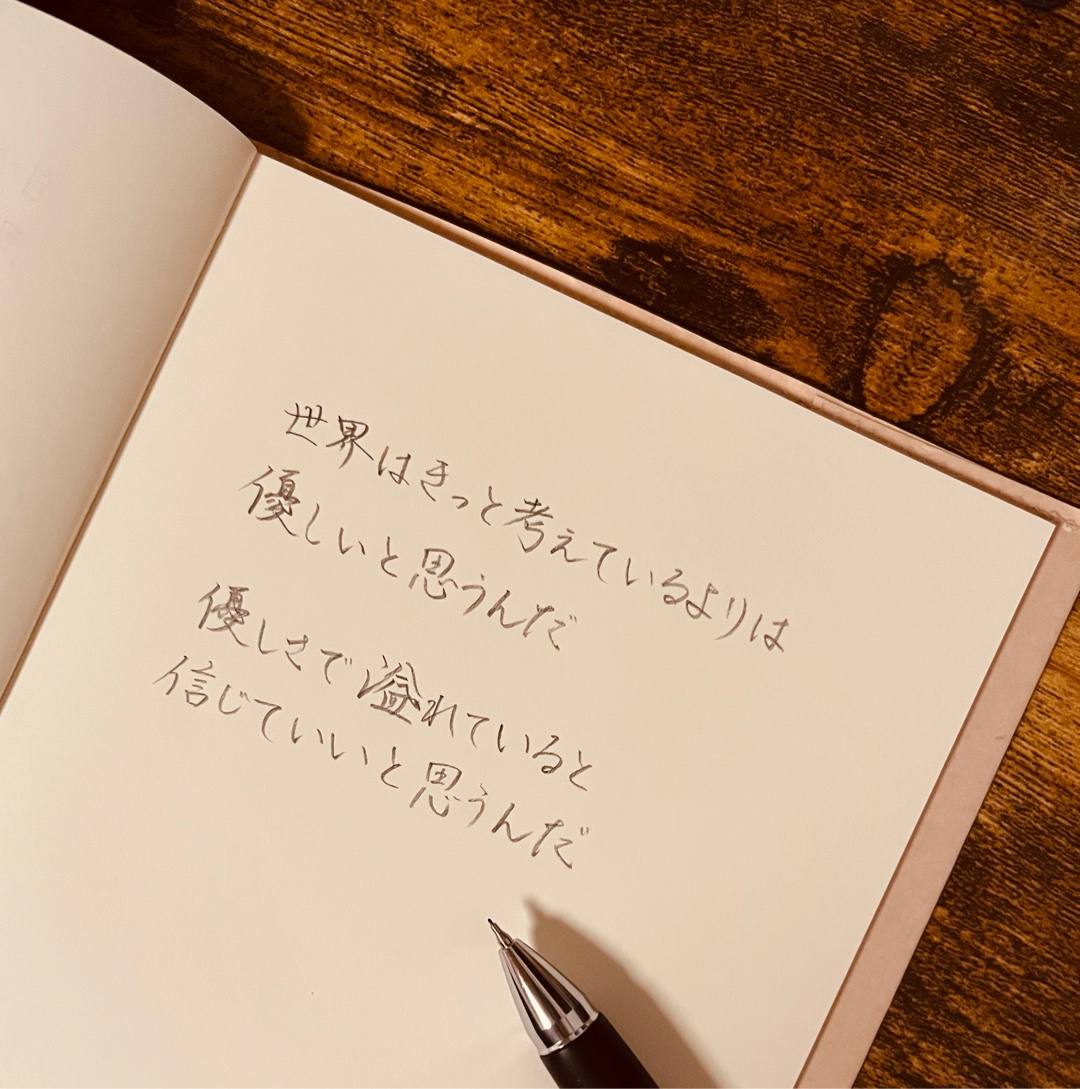 世界はきっと考えているよりは
優しいと思うんだ
優しさで溢れていると
信じていいと思うんだ